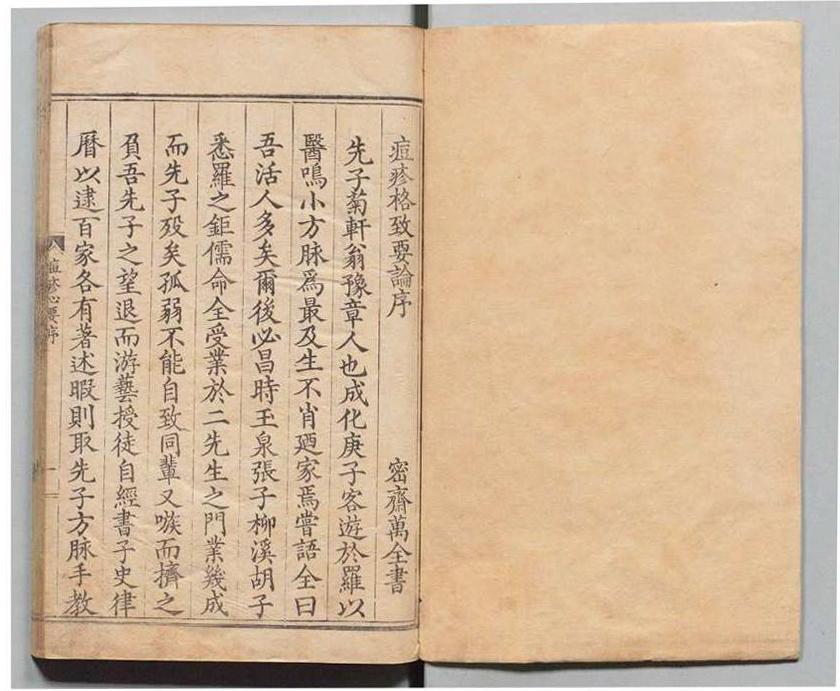 痘疹格致要論序 密齋萬全書
先子菊軒翁豫章人也成化庚子客遊於羅以
醫鳴小方脉爲最及生不肖廼家焉嘗語全曰
吾活人多矣爾後必昌時玉泉張子柳溪胡子
悉羅之鉅儒命全受業於二先生之門業幾成
而先子歿矣孤弱不能自致同輩又嗾而擠之
負吾先子之望退而游藝授徒自經書子史律
曆以逮百家各有著述暇則取先子方脉手教
痘疹心要序